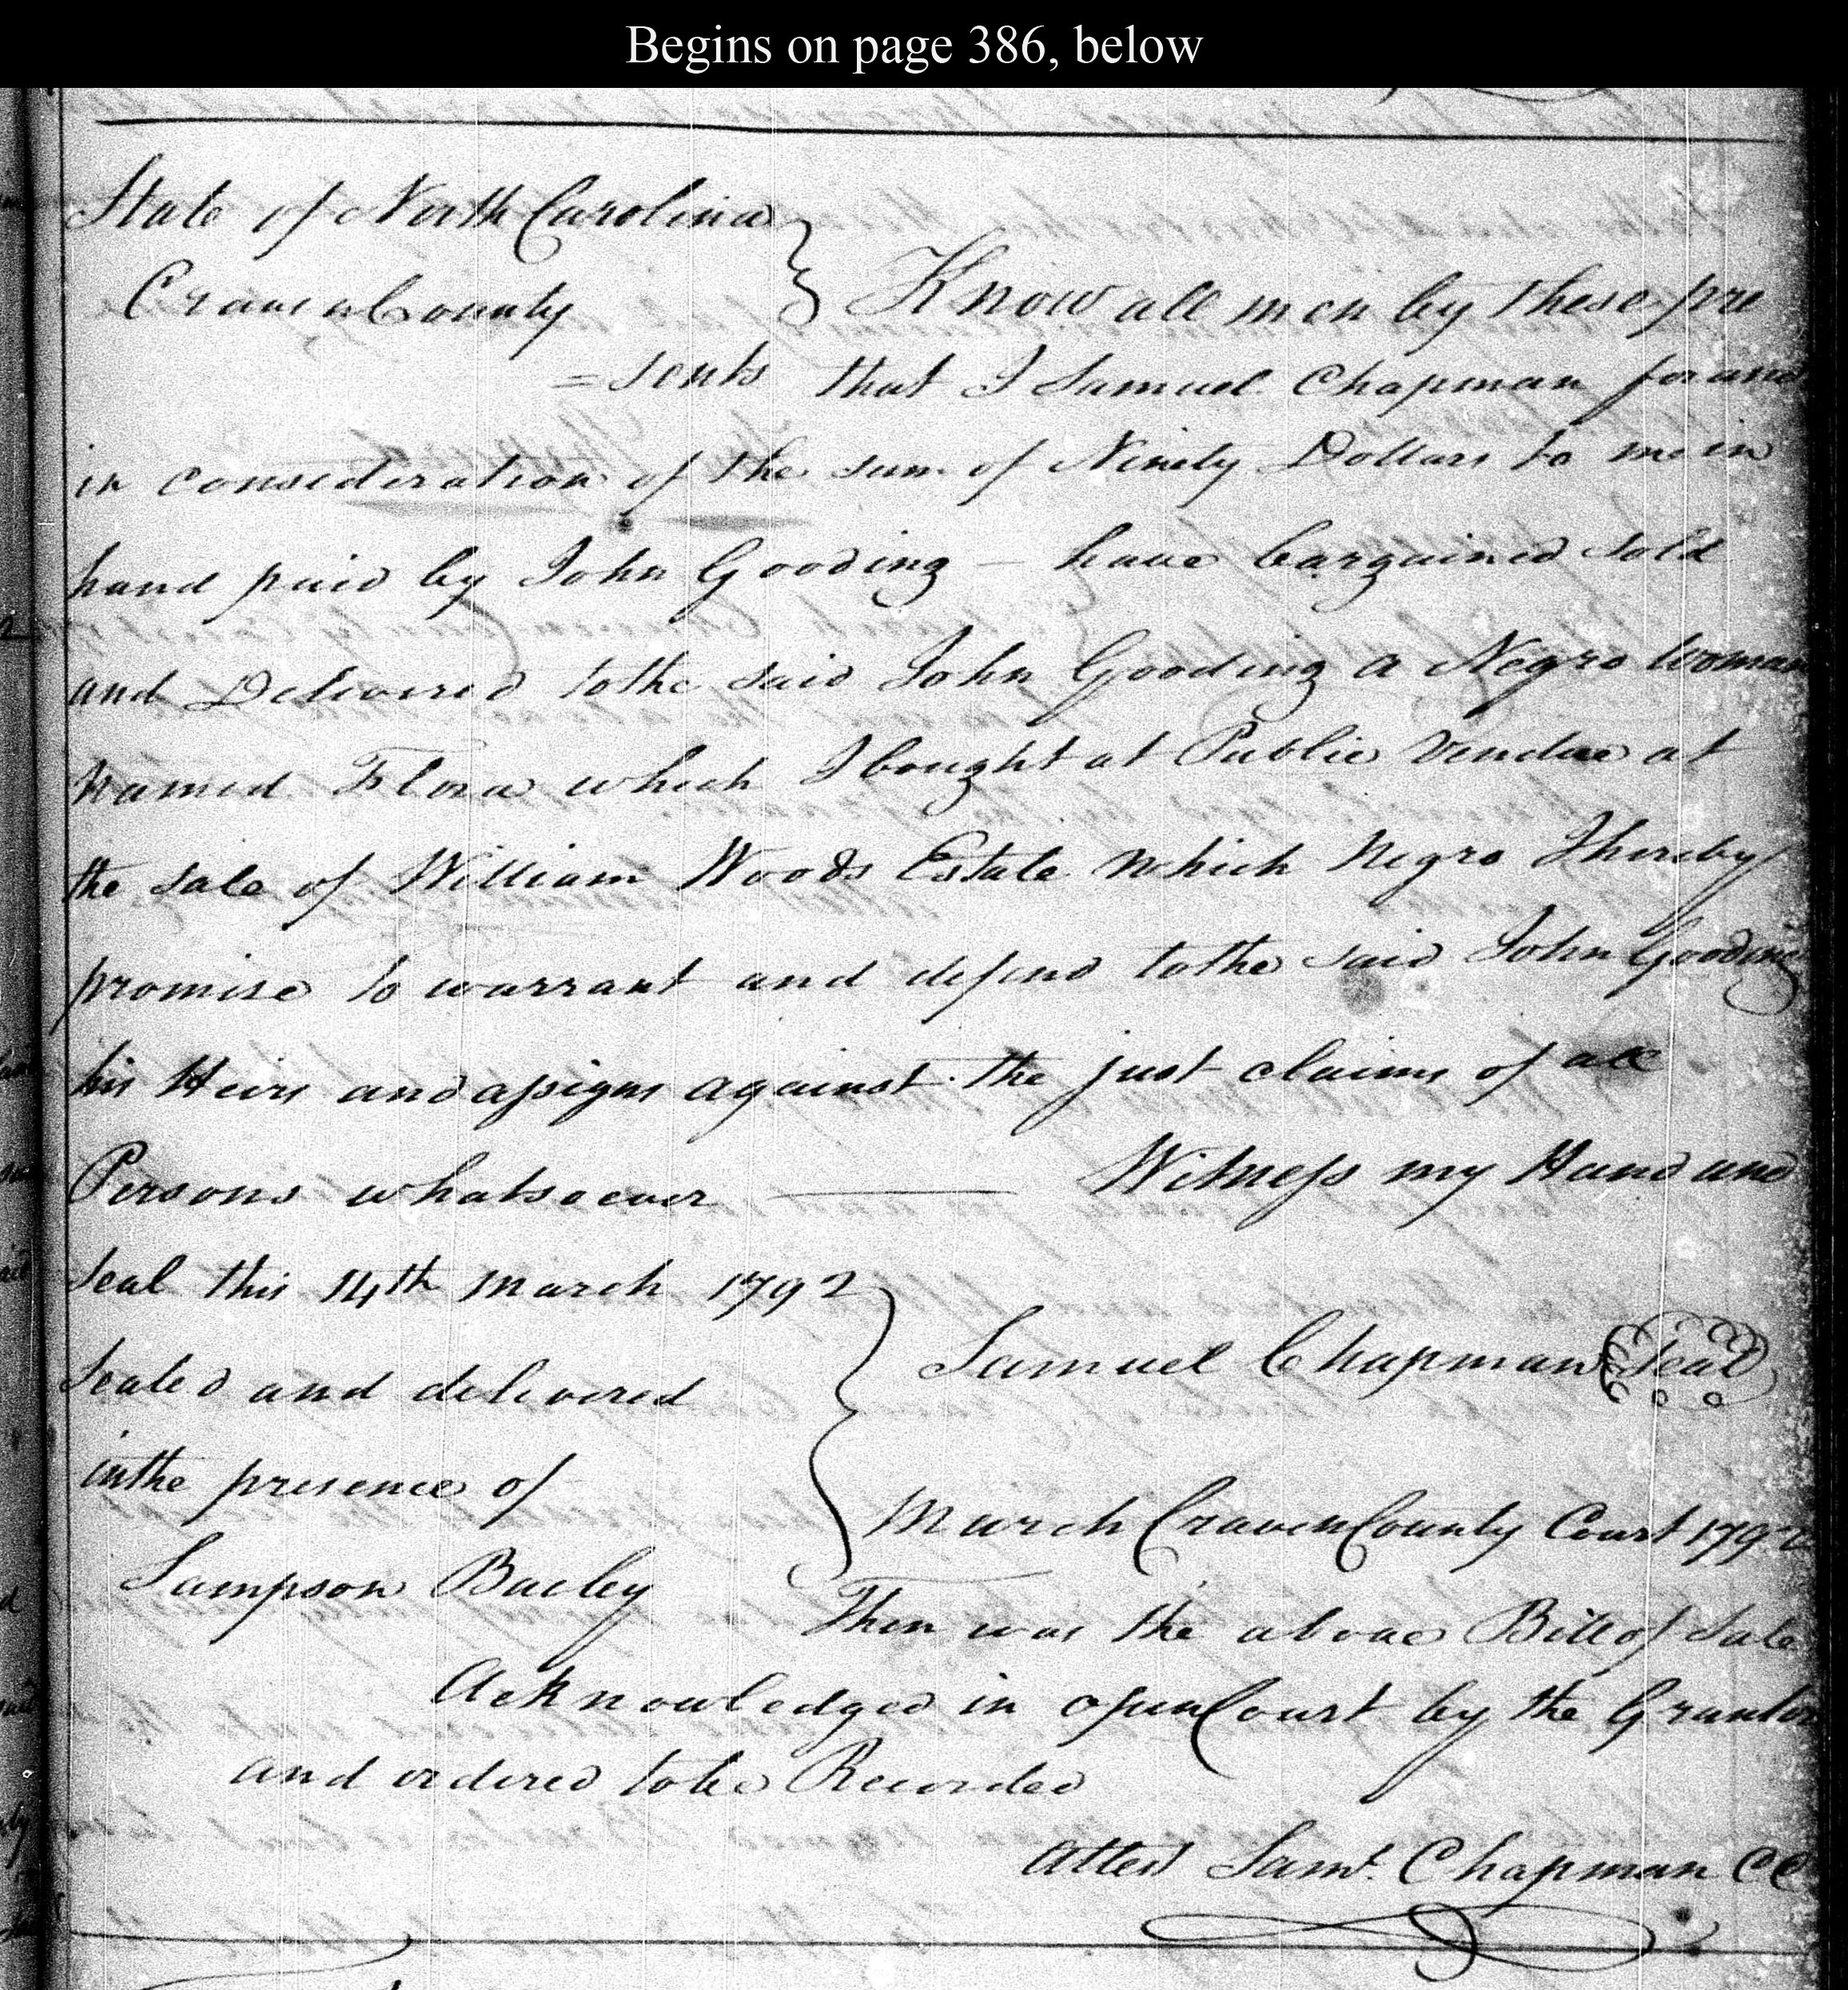 Begins on page 386, below
State of North Carolina
Craven County } Know all men by these pre
=sents that I Samuel Chapman for and
in consideration of the sum of Ninety Dollars to me in
hand paid by John Gooding — have bargained sold
and Delivered to the said John Gooding a Negro woman
named Flora which I bought at Public Vendue at
the sale of William Woods Estate which Negro I hereby
promise to warrant and defend to the said John Gooding
his Heirs and assigns against the just claims of all
Persons whatsoever — Witness my Hand and
seal this 14th March 1792
Samuel Chapman Seal
Sealed and delivered
in the presence of
Sampson
March Craven County Court 1792
Then was the above Bill of Sale
Acknowledged in open Court by the Grantor
and ordered to be Recorded
Attest Saml. Chapman CC